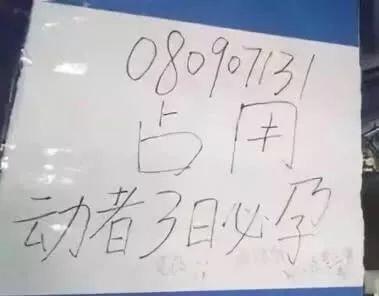 080907131
占用
动者3日必孕